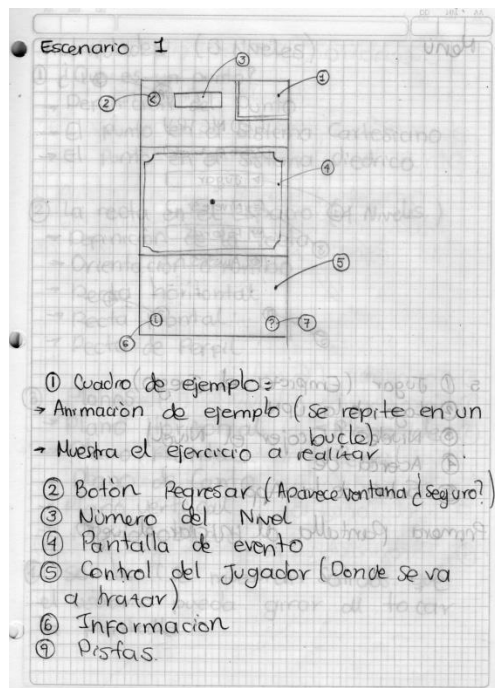 Escenario 1
③
①
② <
④
⑤
⑥ ① ? ⑦
① Cuadro de ejemplo:
→ Animación de ejemplo (se repite en un
bucle)
→ Muestra el ejercicio a realizar
② Botón Regresar (Aparece ventana ¿seguro?)
③ Número del Nivel
④ Pantalla de evento
⑤ Control del Jugador (Donde se va
a tratar)
⑥ Informacion
⑨ Pistas.